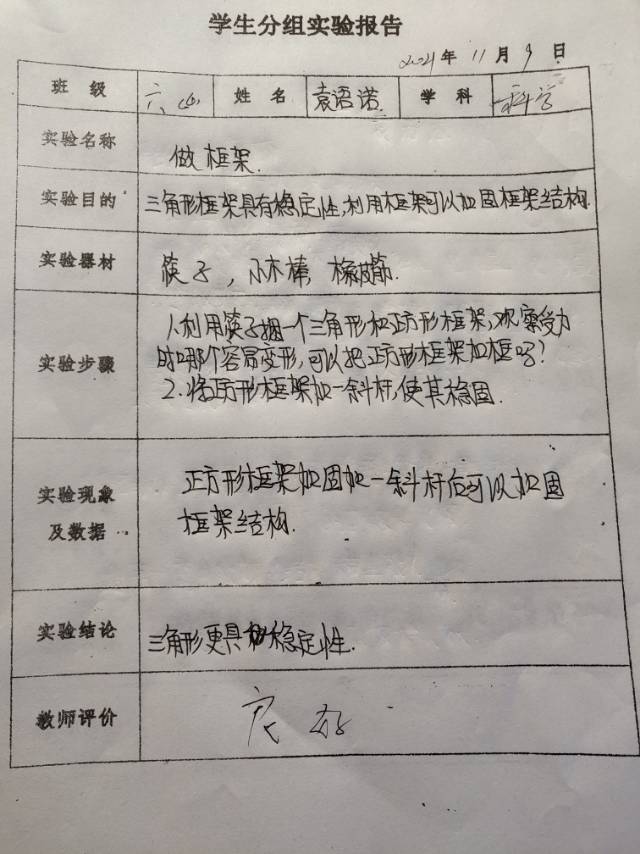 学生分组实验报告
2021年 11月 9日
班 级 六、(4) 姓 名 袁语诺 学 科 科学
实验名称 做框架.
实验目的 三角形框架具有稳定性,利用框架可以加固框架结构.
实验器材 筷子,小木棒,橡皮筋.
1.利用筷子捆一个三角形和正方形框架,观察受力
实验步骤 时哪个容易变形,可以把正方形框架加框吗?
2.将正方形框架加一斜杆,使其稳固.
实验现象 正方形框架加固加一斜杆后可以加固
及数据 框架结构.
实验结论 三角形更具有稳定性.
教师评价 良好